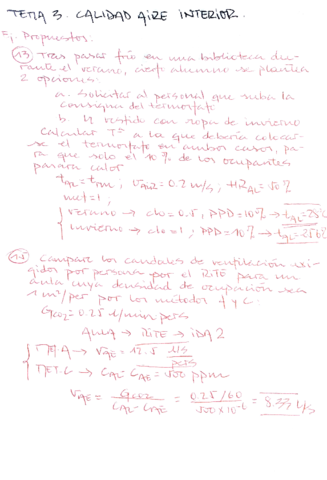 TEMA 3. CALIDAD AIRE INTERIOR.
Ej Propuestos:
13) Tras pasar frío en una biblioteca du-
rante el verano, cierto alumno se plantea
2 opciones:
a. solicitar al personal que suba la
consigna del termostato
b. Ir vestido con ropa de invierno
Calcular Tª a la que debería colocar-
se el termostato en ambos casos, pa-
ra que solo el 10% de los ocupantes
pasara calor
met = 1,
verano → clo = 0.5, PPD = 10% →
invierno → clo = 1, PPD = 10% →
Compare los caudales de ventilación exi-
gidos por persona por el RITE para un
aula cuya densidad de ocupación sea
1 m²/per por los métodos A y C:
GCO2 = 0.25 l/min pers
AULA → RITE → IDA 2
MET. A → VAE = 12.5 l/s pers
MET. C → CAI - CAE = 500 ppm
VAE = GCO2 / CAI - CAE = 0.25/60 / 500 x 10^-6 = 8.33 l/s